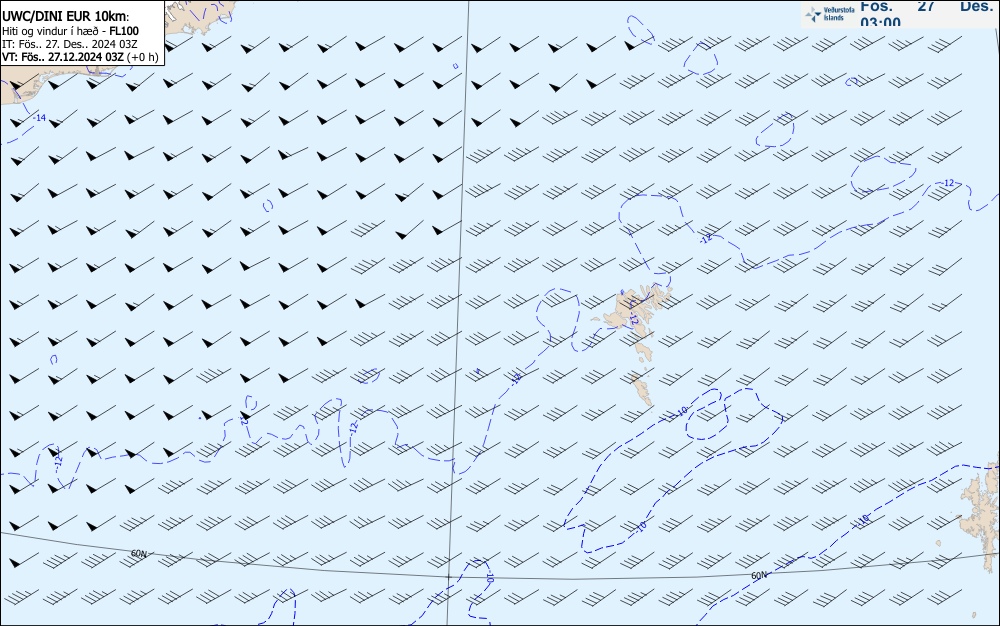 UWC/DINI EUR 10km:
Hiti og vindur í hæð - FL100
IT: Fös.. 27. Des.. 2024 03Z
VT: Fös.. 27.12.2024 03Z (+0 h)
Veðurstofa Íslands
Fös. 27 Des.
03:00
-14
-12
-12
-12
-12
-10
-12
-12
-12
-10
-10
60N
-10
60N